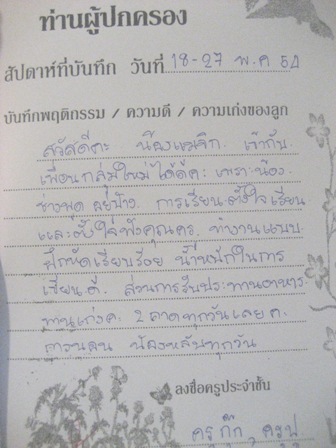 ท่านผู้ปกครอง
สัปดาห์ที่บันทึก วันที่ 18-27 พ.ค 54
บันทึกพฤติกรรม / ความดี / ความเก่งของลูก
สวัสดีคะ น้องแมจิก เข้ากับ
เพื่อนกลุ่มใหม่ได้ดีคะ เพราะน้อง
ช่างพูด คุยบ้าง การเรียนตั้งใจเรียน
และตั้งใจฟังคุณครู ทำงานแบบ
ฝึกหัดเรียบร้อย น้ำหนักในการ
เขียนดี ส่วนการรับประทานอาหาร
ทานเก่งคะ 2 ถาดทุกวันเลยคะ
การนอน น้องหลับทุกวัน
ลงชื่อครูประจำชั้น
ครูกิ๊ก,